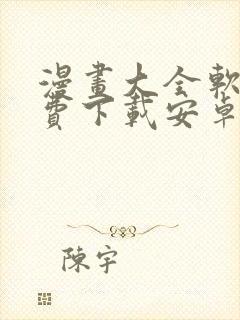 漫畫大全軟
費下載安卓
陳宇